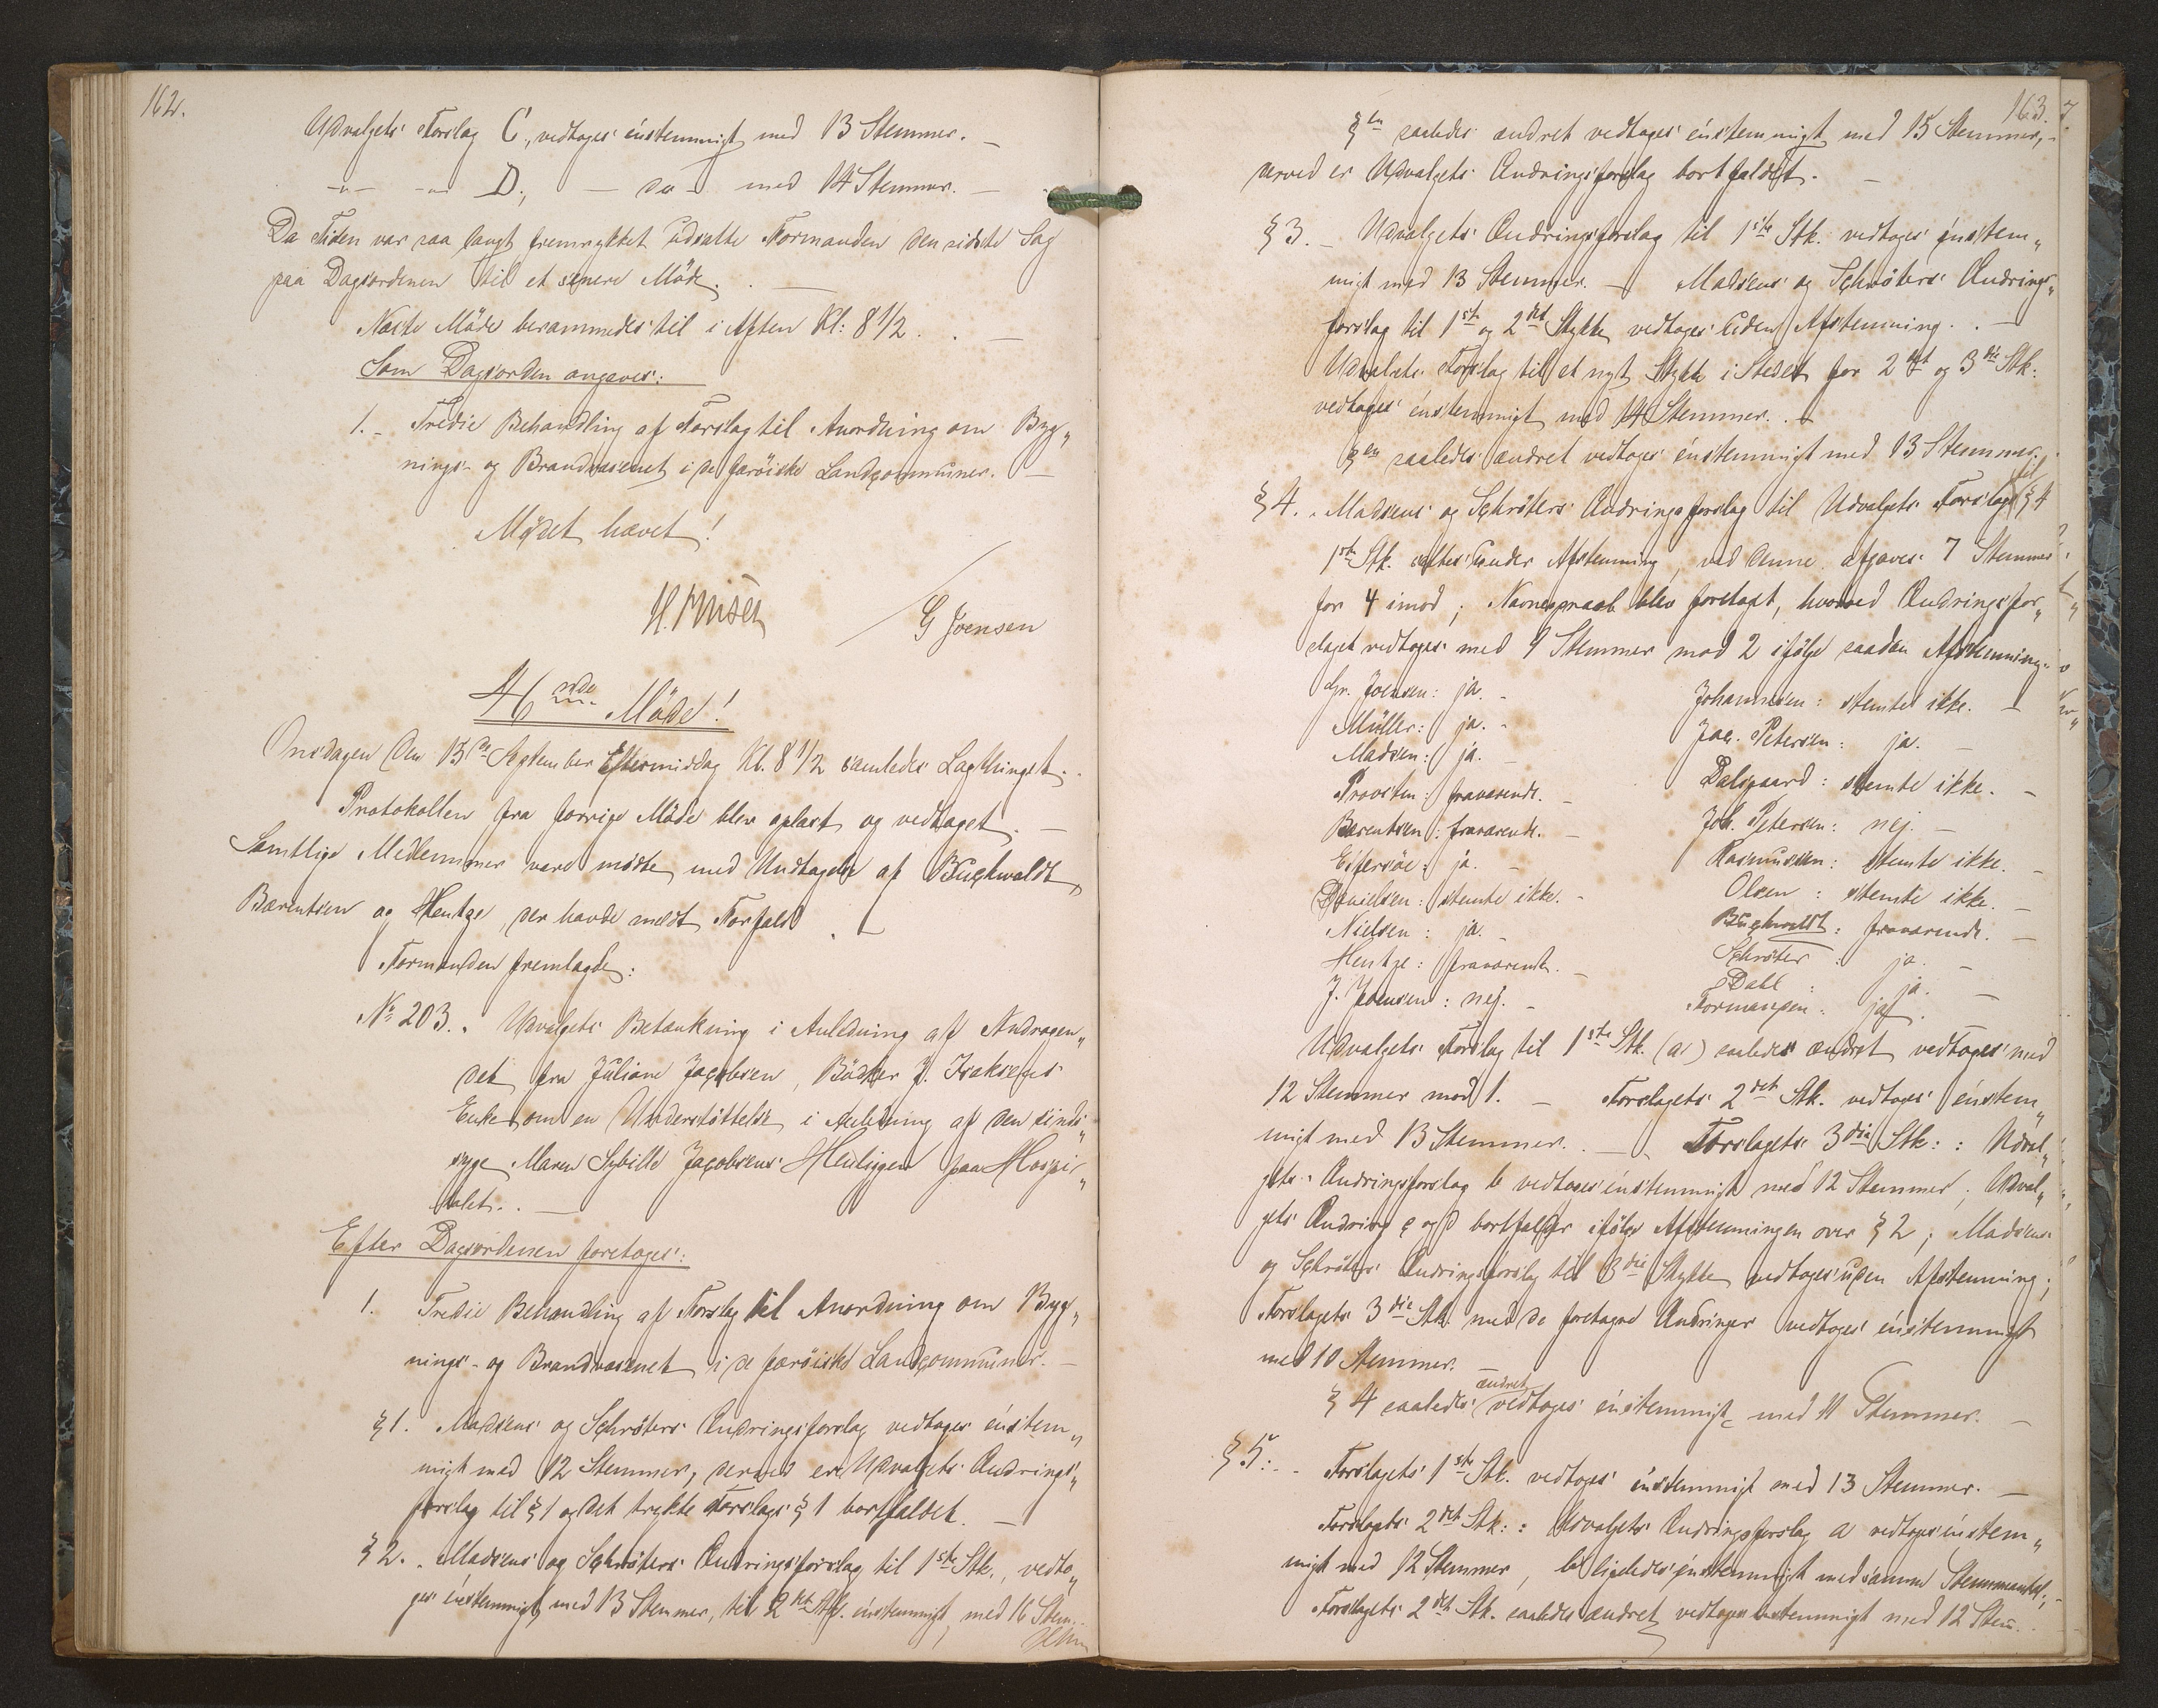 162.
Udvalgets Forslag C., vedtoges énstemmigt med 13 Stemmer. —
-„- -„- D., — do - med 14 Stemmer. —
Da Tiden var saa langt fremrykket udsatte Formanden den sidste Sag
paa Dagsordenen til et senere Möde. —
Næste Möde berammedes til i Aften Kl: 8 1/2. —
Som Dagsorden angaves:
1. - Tredie Behandling af Forslag til Anordning om Byg„
nings- og Brandvæsenet i de færöiske Landcommuner. —
Mödet hævet!
G Joensen
46nde Möde!
Onsdagen den 13de September Eftermiddag Kl. 8 1/2 samledes Lagthinget. -
Protokollen fra forrige Möde blev oplæst og vedtaget. —
Samtlige Medlemmer vare mödte med Undtagelse af Buchwaldt,
Bærentsen og Hentze, der havde meldt Forfald. —
Formanden fremlagde:
No 203. Udvalgets Betænkning i Anledning af Andragen„
det fra Juliane Jacobsen, Bödker J. Isaksens
Enke om en Understöttelse i Anledning af den sinds„
syge Maren Sybille Jacobsens Henliggen paa Hospi„
talet. —
Efter Dagsordenen foretoges:
1. Tredie Behandling af Forslag til Anordning om Byg„
nings- og Brandvæsenet i de færöiske Landcommuner. —
§ 1. Madsens og Schröters Ændringsforslag vedtoges énstem„
migt med 12 Stemmer, derved er Udvalgets Ændrings„
forslag til § 1 og det trykte Forslags § 1 bortfaldet. —
§ 2. Madsens og Schröters Ændringsforslag til 1ste Stk., vedto„
ges énstemmigt med 13 Stemmer, til 2det Stk. énstemmigt, med 16 Stem.
163.
§en saaledes ændret vedtoges énstemmigt med 15 Stemmer, -
derved er Udvalgets Ændringsforslag bortfaldet. —
§ 3. - Udvalgets Ændringsforslag til 1ste Stk. vedtoges énstem„
migt med 13 Stemmer. — Madsens og Schröters Ændrings„
forslag til 1ste og 2det Stykke vedtoges uden Afstemning. —
Udvalgets Forslag til et nyt Stykke i Stedet for 2det og 3die Stk.
vedtoges énstemmigt med 14 Stemmer. —
§en saaledes ændret vedtoges énstemmigt med 13 Stemmer.
§ 4. Madsens og Schröters Ændringsforslag til Udvalgets Forslag til § 4
1ste Stk. sattes under Afstemning, ved denne afgaves 7 Stemmer
for 4 imod; Navneopraab blev foretaget, hvorved Ændringsfor„
slaget vedtoges med 9 Stemmer mod 2 ifölge saadan Afstemning:
Gr. Joensen: ja. - Johannesen: stemte ikke. —
Müller: ja. - Jac. Petersen: ja. —
Madsen: ja. - Dalsgaard: stemte ikke. —
Provsten: fraværende. - Joh. Petersen: nej. —
Bærentsen: fraværende. - Rasmussen: stemte ikke. —
Effersöe: ja. - Olsen: stemte ikke. —
Danielsen: stemte ikke. - Buchwaldt: fraværende. —
Nielsen: ja. - Schröter: ja. —
Hentze: fraværende. - Dahl: ja. —
J. Joensen: nej. - Formanden: ja. —
Udvalgets Forslag til 1ste Stk. (a) saaledes ændret vedtoges med
12 Stemmer mod 1. — Forslagets 2det Stk. vedtoges énstem„
migt med 13 Stemmer. — Forslagets 3die Stk: : Udval„
gets Ændringsforslag b vedtoges énstemmigt med 12 Stemmer; Udval„
gets Ændring c og d bortfalder ifölge Afstemningen over § 2; Madsens
og Schröters Ændringsforslag til 3die Stykke vedtoges uden Afstemning;
Forslagets 3die Stk. med de foretagne Ændringer vedtoges énstemmigt
med 10 Stemmer. —
§ 4 saaledes ændret vedtoges énstemmigt med 11 Stemmer. —
§ 5: - Forslagets 1ste Stk. vedtoges énstemmigt med 13 Stemmer. —
Forslagets 2det Stk: : Udvalgets Ændringsforslag a vedtoges énstem„
migt med 12 Stemmer, b ligeledes énstemmigt med samme Stemmeantal; -
Forslagets 2det Stk. saaledes ændret vedtoges énstemmigt med 12 Stem.